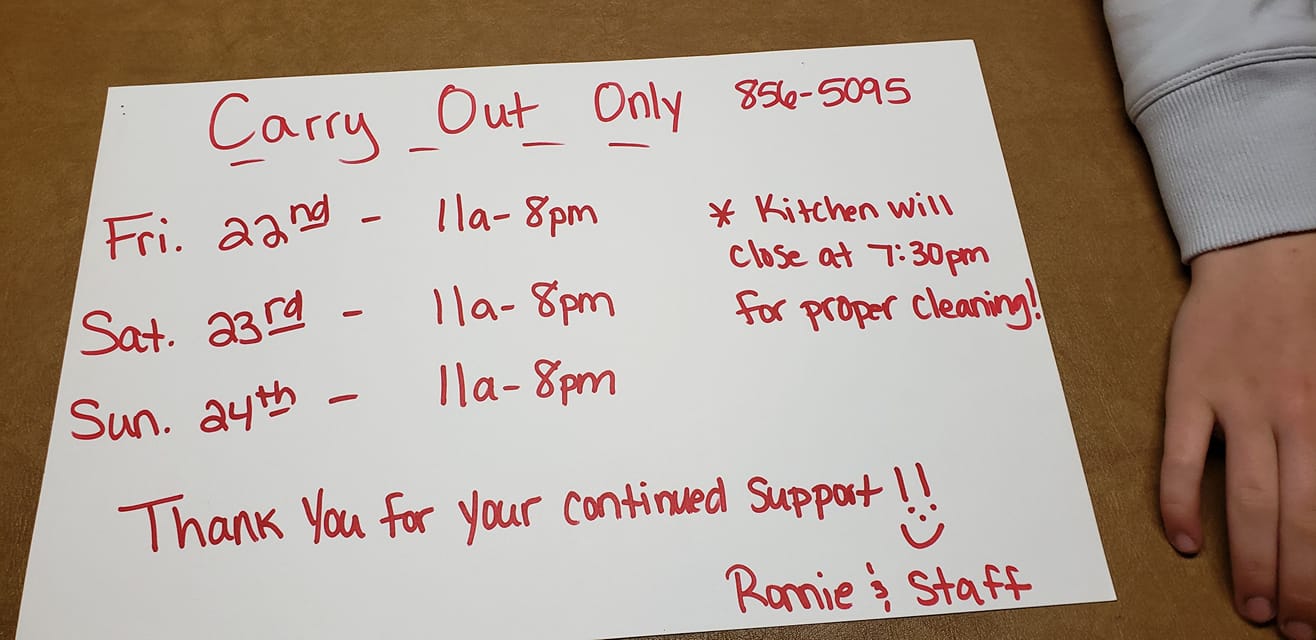 Carry Out Only 856-5095
Fri. 22nd - 11a-8pm
Sat. 23rd - 11a-8pm
Sun. 24th - 11a-8pm
* Kitchen will
close at 7:30pm
for proper cleaning!
Thank You for your continued support!!
Ronnie & Staff